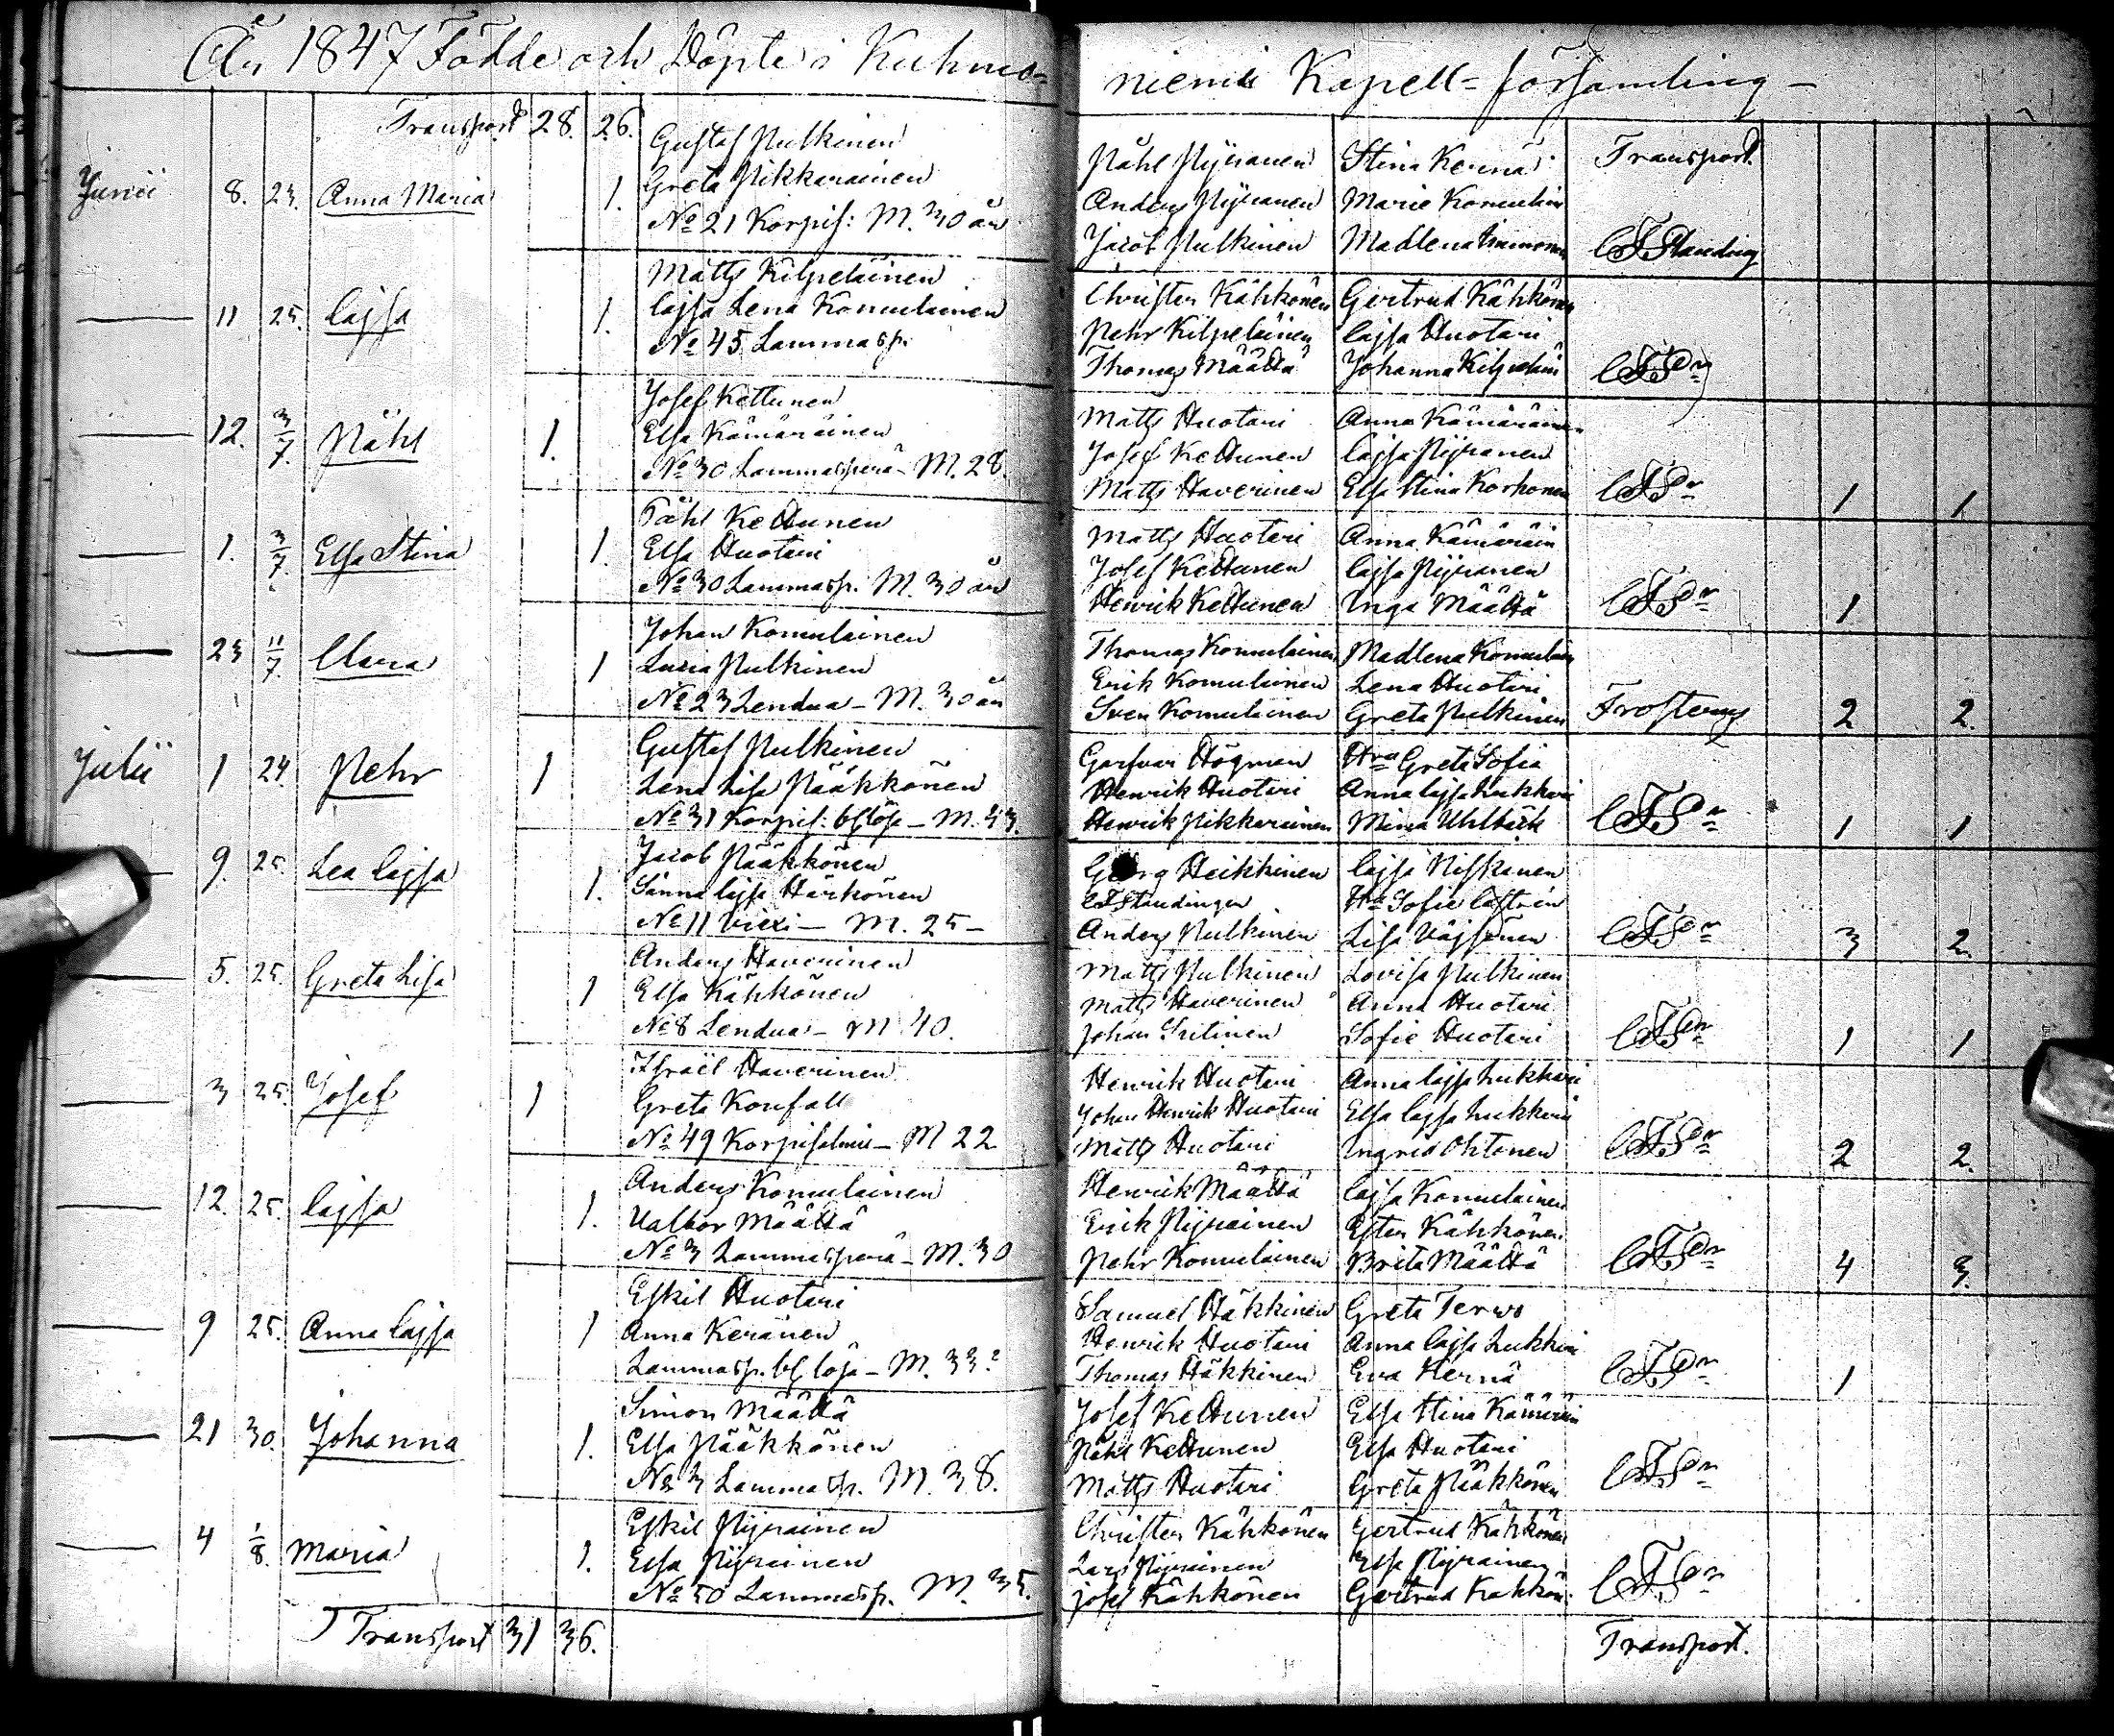 År 1847 Födde och Döpte i Kuhmo-
niemi Kapell-församling -
Transport 28. 26.
Gustaf Pulkinen
Junii 8. 23. Anna Maria 1. Greta Pikkarainen
No 21 Korpis: M. 30 år
Påhl Pyÿranen Stina Kernä Transport
Anders Pÿÿranen Maria Komulain
Jacob Pulkinen Madlena CFStauding
Matts Kilpeläinen
11 25. Cajsa 1. Cajsa Lena Komulainen
No 45 Lammasp.
Christer Kähkönen Gertrud Kähkönen
Pehr Kilpeläinen Cajsa Huotari
Thomas Määttä Johanna Kilpeläin CFSn
Josef Kettunen
12. 3/7. Påhl 1. Elsa Kämäräinen
No 30 Lammasperä - M. 28
Matts Huotari Anna Kämäräinen
Josef Kettunen Cajsa Pÿÿranen
Matts Haverinen Elsa Stina Korhonen CFSn 1 1
Påhl Kettunen
1. 3/7. Elsa Stina 1. Elsa Huotari
No 30 Lammasp. M. 30 år
Matts Huotari Anna Kämäräin
Josef Kettunen Cajsa Pÿÿranen
Henrik Kettunen Inga Määttä CFSn 1
Johan Komulainen
23 11/7. Clara 1 Pulkinen
No 23 Lendua - M. 30 år
Thomas Komulainen Madlena Komulain
Erik Komulainen Lena Huotari
Sven Komulainen Greta Pulkinen Frosterus 2 2.
Gustaf Pulkinen
Julii 1 24 Pehr 1 Lena Lisa Pääkkönen
No 31 Korpis: M. 43.
Högman Greta Sofia
Henrik Huotari Anna Cajsa Lukkari
Henrik Pikkarainen CFSn 1 1
Jacob Pääkkönen
9. 25. Lea Cajsa 1. Sanna Cajsa Härkönen
No 11 Viexi - M. 25 -
Georg Heikkinen Cajsa Niskanen
CFStaudinger Sofie Castrén
Anders Pulkinen Lisa Väisänen CFSn 3 2.
Anders Haverinen
5. 25. Greta Lisa 1 Elsa Kähkönen
No 8 Lendua - M 40.
Matts Pulkinen Lovisa Pulkinen
Matts Haverinen Anna Huotari
Johan Sofie Huotari CFSn 1 1
Israël Haverinen
3 25. Josef 1 Greta Korfall
No 49 Korpisalmi - M 22
Henrik Huotari Anna Cajsa Lukkari
Johan Henrik Huotari Elsa Cajsa Lukkari
Matts Huotari Ingrid Ohtonen CFSn 2 2.
Anders Komulainen
12. 25. Cajsa 1. Valbor Määttä
No 3 Lammasperä - M. 30
Henrik Määttä Cajsa Komulainen
Erik Pÿÿrainen Ester Kähkönen
Pehr Komulainen Brita Määttä CFSn 4 3.
Eskil Huotari
9 25. Anna Cajsa 1 Anna Keränen
Lammasp. M. 33?
Samuel Häkkinen Greta Tervo
Henrik Huotari Anna Cajsa Lukkari
Thomas Häkkinen Eva Kernä CFSn 1
Simon Määttä
21 30. Johanna 1. Elsa Pääkkönen
No 3 Lammasp. M. 38.
Josef Kettunen Elsa Stina Kämäräin
Påhl Kettunen Elsa Huotari
Matts Huotari Greta Pääkkönen CFSn
Eskil Pÿÿrainen
4 1/8. Maria 1. Elsa Pÿÿrainen
No 50 Lammasp. M. 35.
Christer Kähkönen Gertrud Kähkönen
Lars Pÿÿrainen Elsa Pÿÿrainen
Josef Kähkönen Gertrud Kähkön: CFSn
Transport 31 36.
Transport.